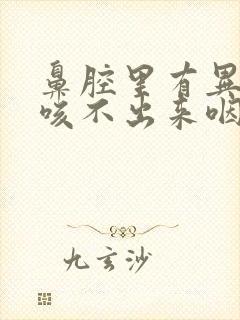 鼻腔里有异
咳不出来咽
九玄沙